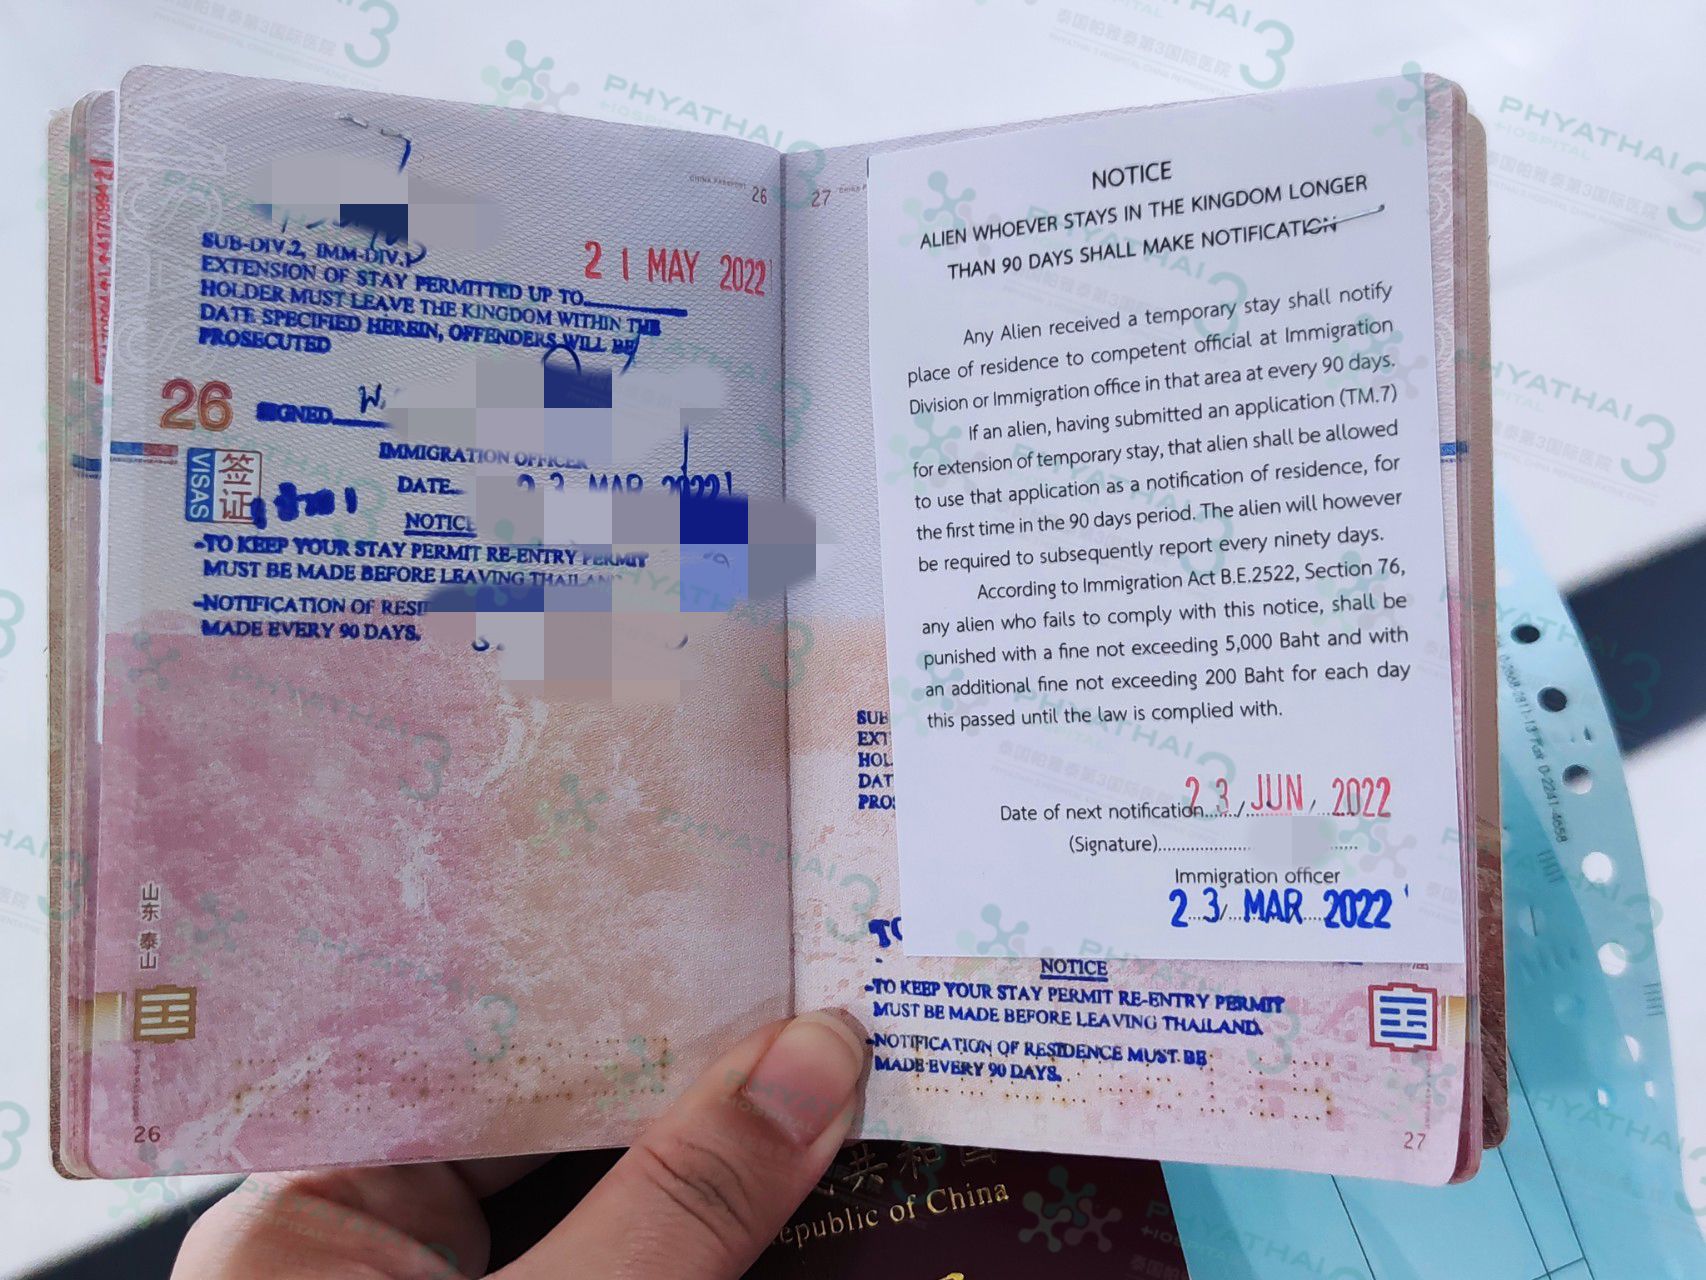 CHINA PASSPORT 26
SUB-DIV.2, IMM-DIV.1
EXTENSION OF STAY PERMITTED UP TO 21 MAY 2022
HOLDER MUST LEAVE THE KINGDOM WITHIN THE
DATE SPECIFIED HEREIN, OFFENDERS WILL BE
PROSECUTED
26
SIGNED
IMMIGRATION OFFICER
DATE 23 MAR 2022
VISAS
签证
NOTICE
-TO KEEP YOUR STAY PERMIT RE-ENTRY PERMIT
MUST BE MADE BEFORE LEAVING THAILAND
-NOTIFICATION OF RESI
MADE EVERY 90 DAYS.
山东 泰山
26
27
NOTICE
ALIEN WHOEVER STAYS IN THE KINGDOM LONGER
THAN 90 DAYS SHALL MAKE NOTIFICATION
Any Alien received a temporary stay shall notify
place of residence to competent official at Immigration
Division or Immigration office in that area at every 90 days.
If an alien, having submitted an application (TM.7)
for extension of temporary stay, that alien shall be allowed
to use that application as a notification of residence, for
the first time in the 90 days period. The alien will however
be required to subsequently report every ninety days.
According to Immigration Act B.E.2522, Section 76,
any alien who fails to comply with this notice, shall be
punished with a fine not exceeding 5,000 Baht and with
an additional fine not exceeding 200 Baht for each day
this passed until the law is complied with.
Date of next notification 23 / JUN / 2022
(Signature)
Immigration officer
23 / MAR 2022
SUB
EXT
HOL
DAT
PROS
NOTICE
-TO KEEP YOUR STAY PERMIT RE-ENTRY PERMIT
MUST BE MADE BEFORE LEAVING THAILAND.
-NOTIFICATION OF RESIDENCE MUST BE
MADE EVERY 90 DAYS.
27
共和国
epublic of China
PHYATHAI 3
HOSPITAL
泰国帕雅泰第3国际医院